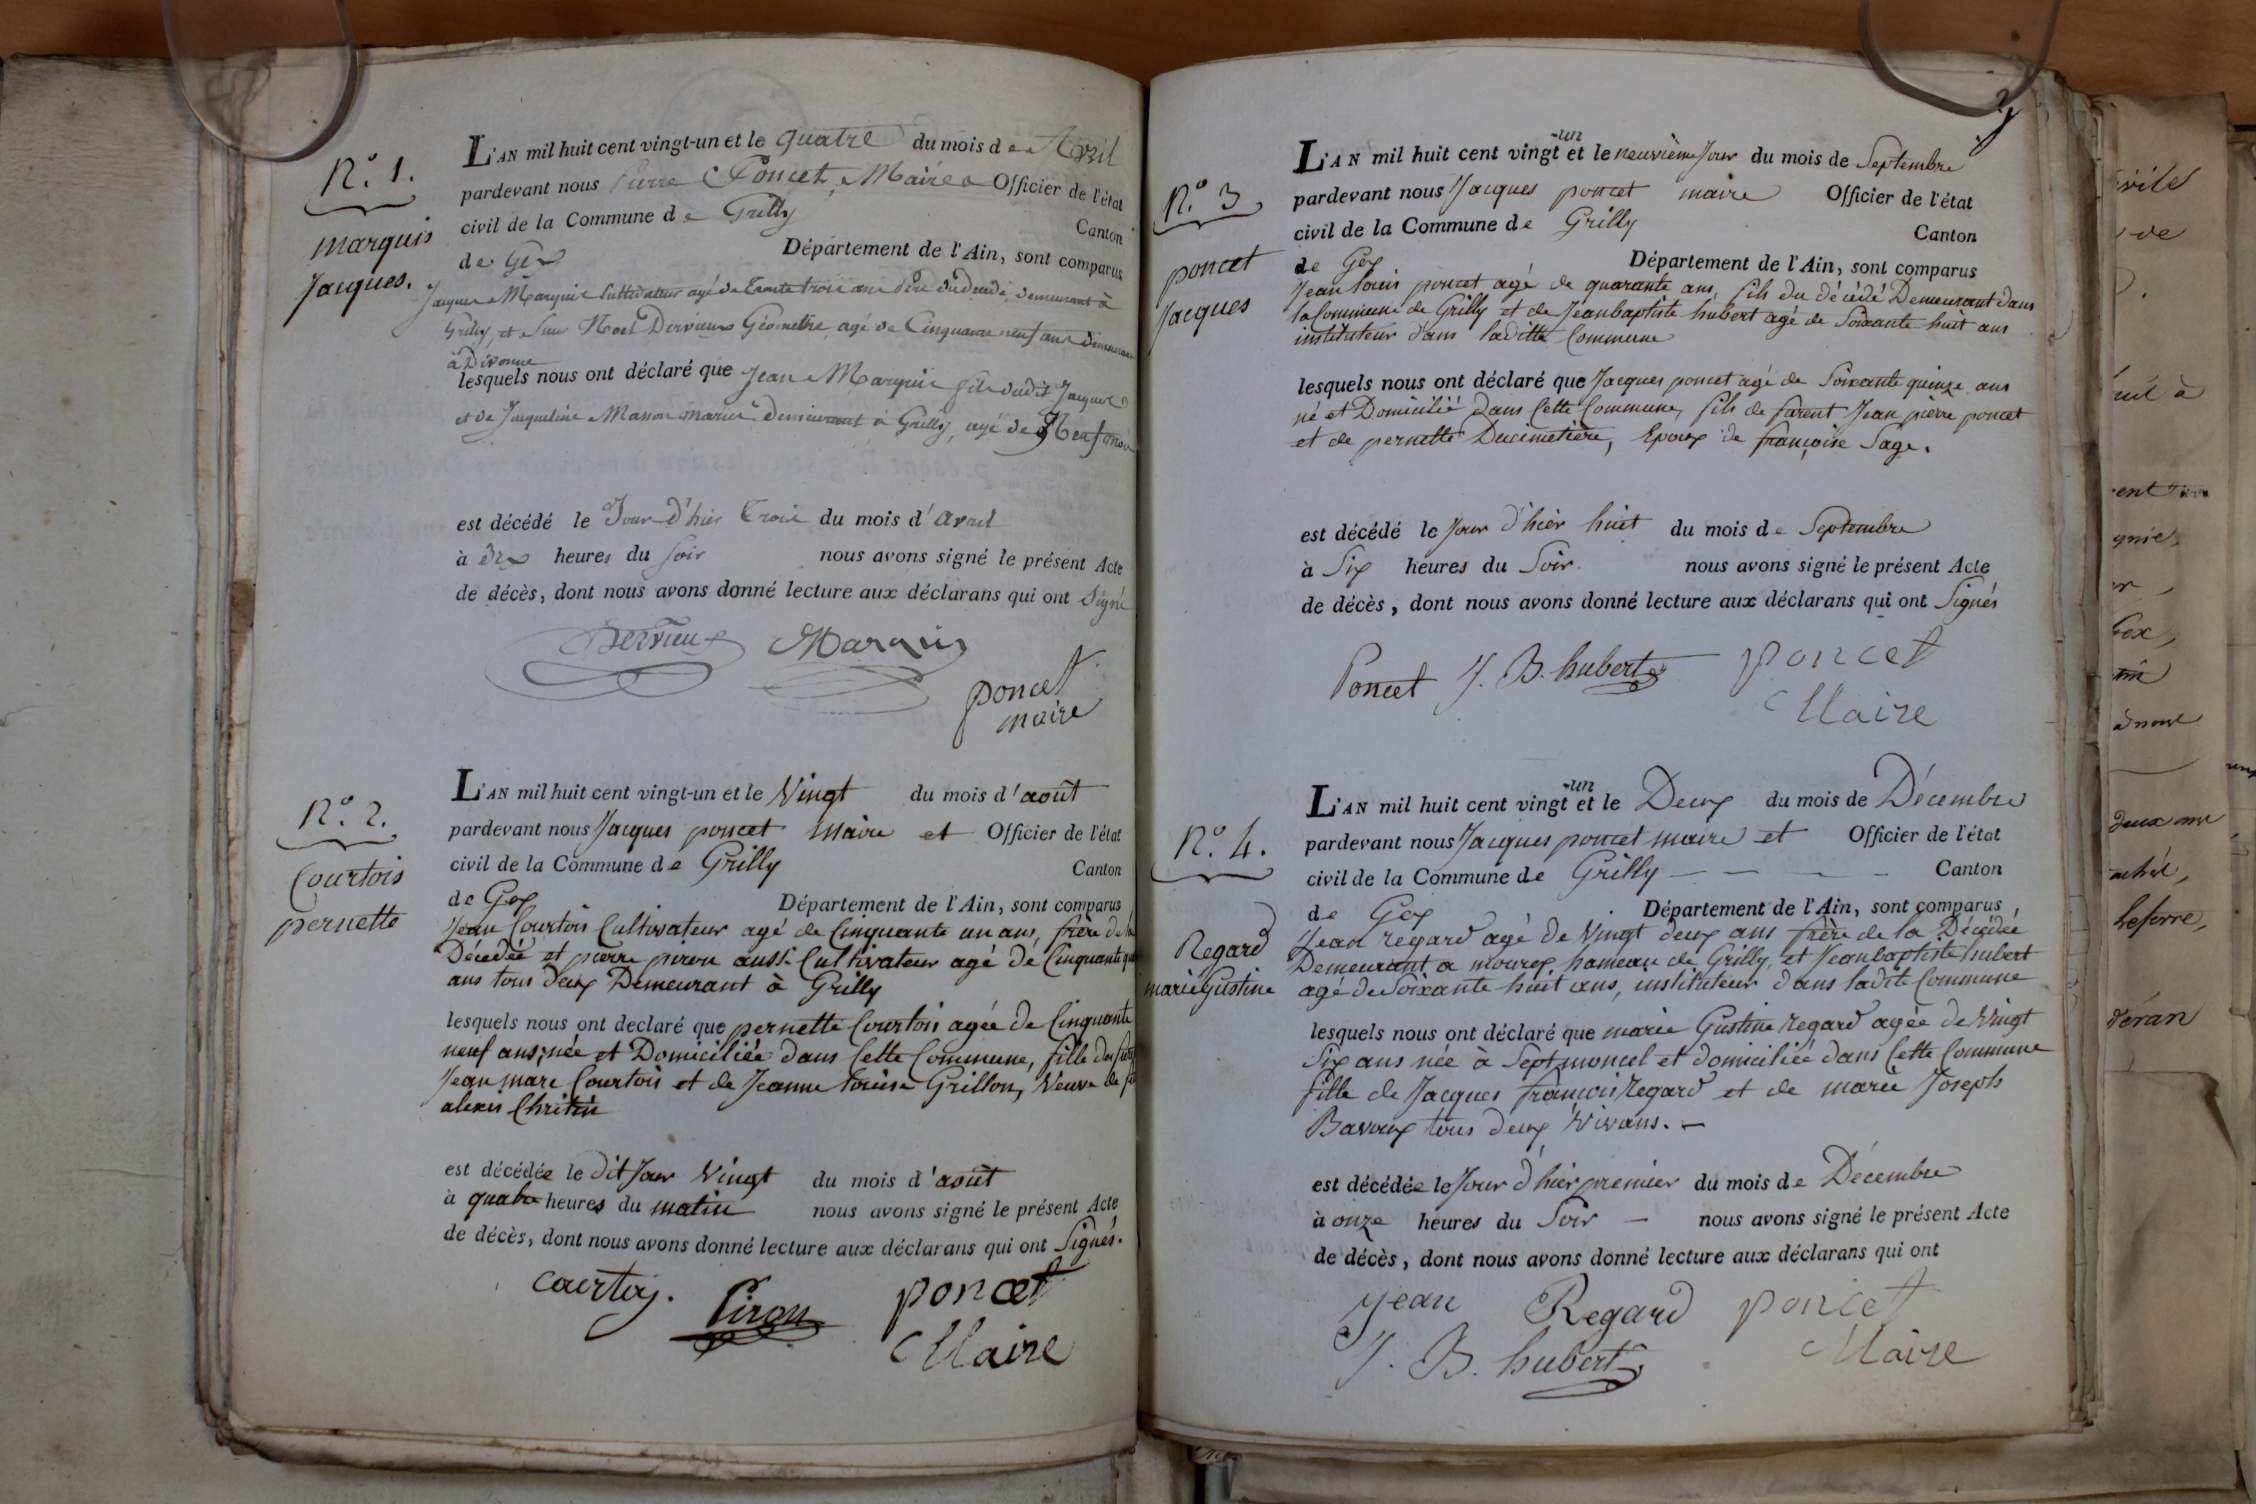 N.º 1.
marquis
Jacques.
L'AN mil huit cent vingt-un et le quatre du mois de Avril
pardevant nous Pierre Poncet, Maire Officier de l'état
civil de la Commune de Grilly Canton
de Gex Département de l'Ain, sont comparus
Jacques Marquis Cultivateur agé de Trente trois ans Père du decédé demeurant à
Grilly, et Sieur Noel Dervieux Géometre agé de Cinquante neuf ans demeurant
à Divonne
lesquels nous ont déclaré que Jean Marquis fils dudit Jacques
et de Jacqueline Masson mariés demeurant à Grilly, agé de Neuf mois
est décédé le Jour d'hier Trois du mois d'avril
à dix heures du Soir nous avons signé le présent Acte
de décès, dont nous avons donné lecture aux déclarans qui ont Signé
Dervieux Marquis
poncet
maire
N.º 2.
Courtois
pernette
L'AN mil huit cent vingt-un et le Vingt du mois d'août
pardevant nous Jacques poncet maire et Officier de l'état
civil de la Commune de Grilly Canton
de Gex Département de l'Ain, sont comparus
Jean Courtois Cultivateur agé de Cinquante un ans, frère de la
Décédée et pierre piron aussi Cultivateur agé de Cinquante
ans tous deux Demeurant à Grilly
lesquels nous ont declaré que pernette Courtois agée de Cinquante
neuf ans, née et Domiciliée dans Cette Commune, fille de
Jean marc Courtois et de Jeanne Louise Grillon, Veuve de
alexis Chritin
est décédée le dit Jour Vingt du mois d'août
à quatre heures du matin nous avons signé le présent Acte
de décès, dont nous avons donné lecture aux déclarans qui ont Signés.
Courtois. Piron poncet
Maire
2
N.º 3
poncet
Jacques
L'AN mil huit cent vingt -un et le neuvième Jour du mois de Septembre
pardevant nous Jacques poncet maire Officier de l'état
civil de la Commune de Grilly Canton
de Gex Département de l'Ain, sont comparus
Jean Louis poncet agé de quarante ans, fils du décédé Demeurant dans
la Commune de Grilly et de Jeanbaptiste hubert agé de Soixante huit ans
instituteur dans laditte Commune
lesquels nous ont déclaré que Jacques poncet agé de Soixante quinze ans
né et Domicilié dans Cette Commune, fils de furent Jean pièrre poncet
et de pernette Ducimetière, Epoux de françoise Sage.
est décédé le Jour d'hier huit du mois de Septembre
à Six heures du Soir nous avons signé le présent Acte
de décès, dont nous avons donné lecture aux déclarans qui ont Signés
Poncet J. B. hubert poncet
Maire
N.º 4.
Regard
marie Gustine
L'AN mil huit cent vingt -un et le Deux du mois de Décembre
pardevant nous Jacques poncet maire et Officier de l'état
civil de la Commune de Grilly Canton
de Gex Département de l'Ain, sont comparus
Jean regard agé de Vingt deux ans frère de la Décédée
Demeurant a mourex hameau de Grilly, et Jeanbaptiste hubert
agé de Soixante huit ans, instituteur dans ladite Commune
lesquels nous ont déclaré que marie Gustine regard agée de Vingt
Six ans née à Septmoncel et domiciliée dans Cette Commune
fille de Jacques françois regard et de marie Joseph
Bavoux tous deux Vivans.
est décédée le Jour d'hier premier du mois de Décembre
à onze heures du Soir nous avons signé le présent Acte
de décès, dont nous avons donné lecture aux déclarans qui ont
Jean Regard poncet
J. B. hubert Maire